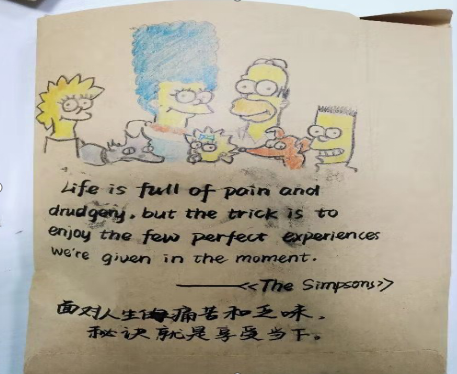 Life is full of pain and
drudgery, but the trick is to
enjoy the few perfect experiences
we're given in the moment.
——<<The Simpsons>>
面对人生的痛苦和乏味,
秘诀就是享受当下。